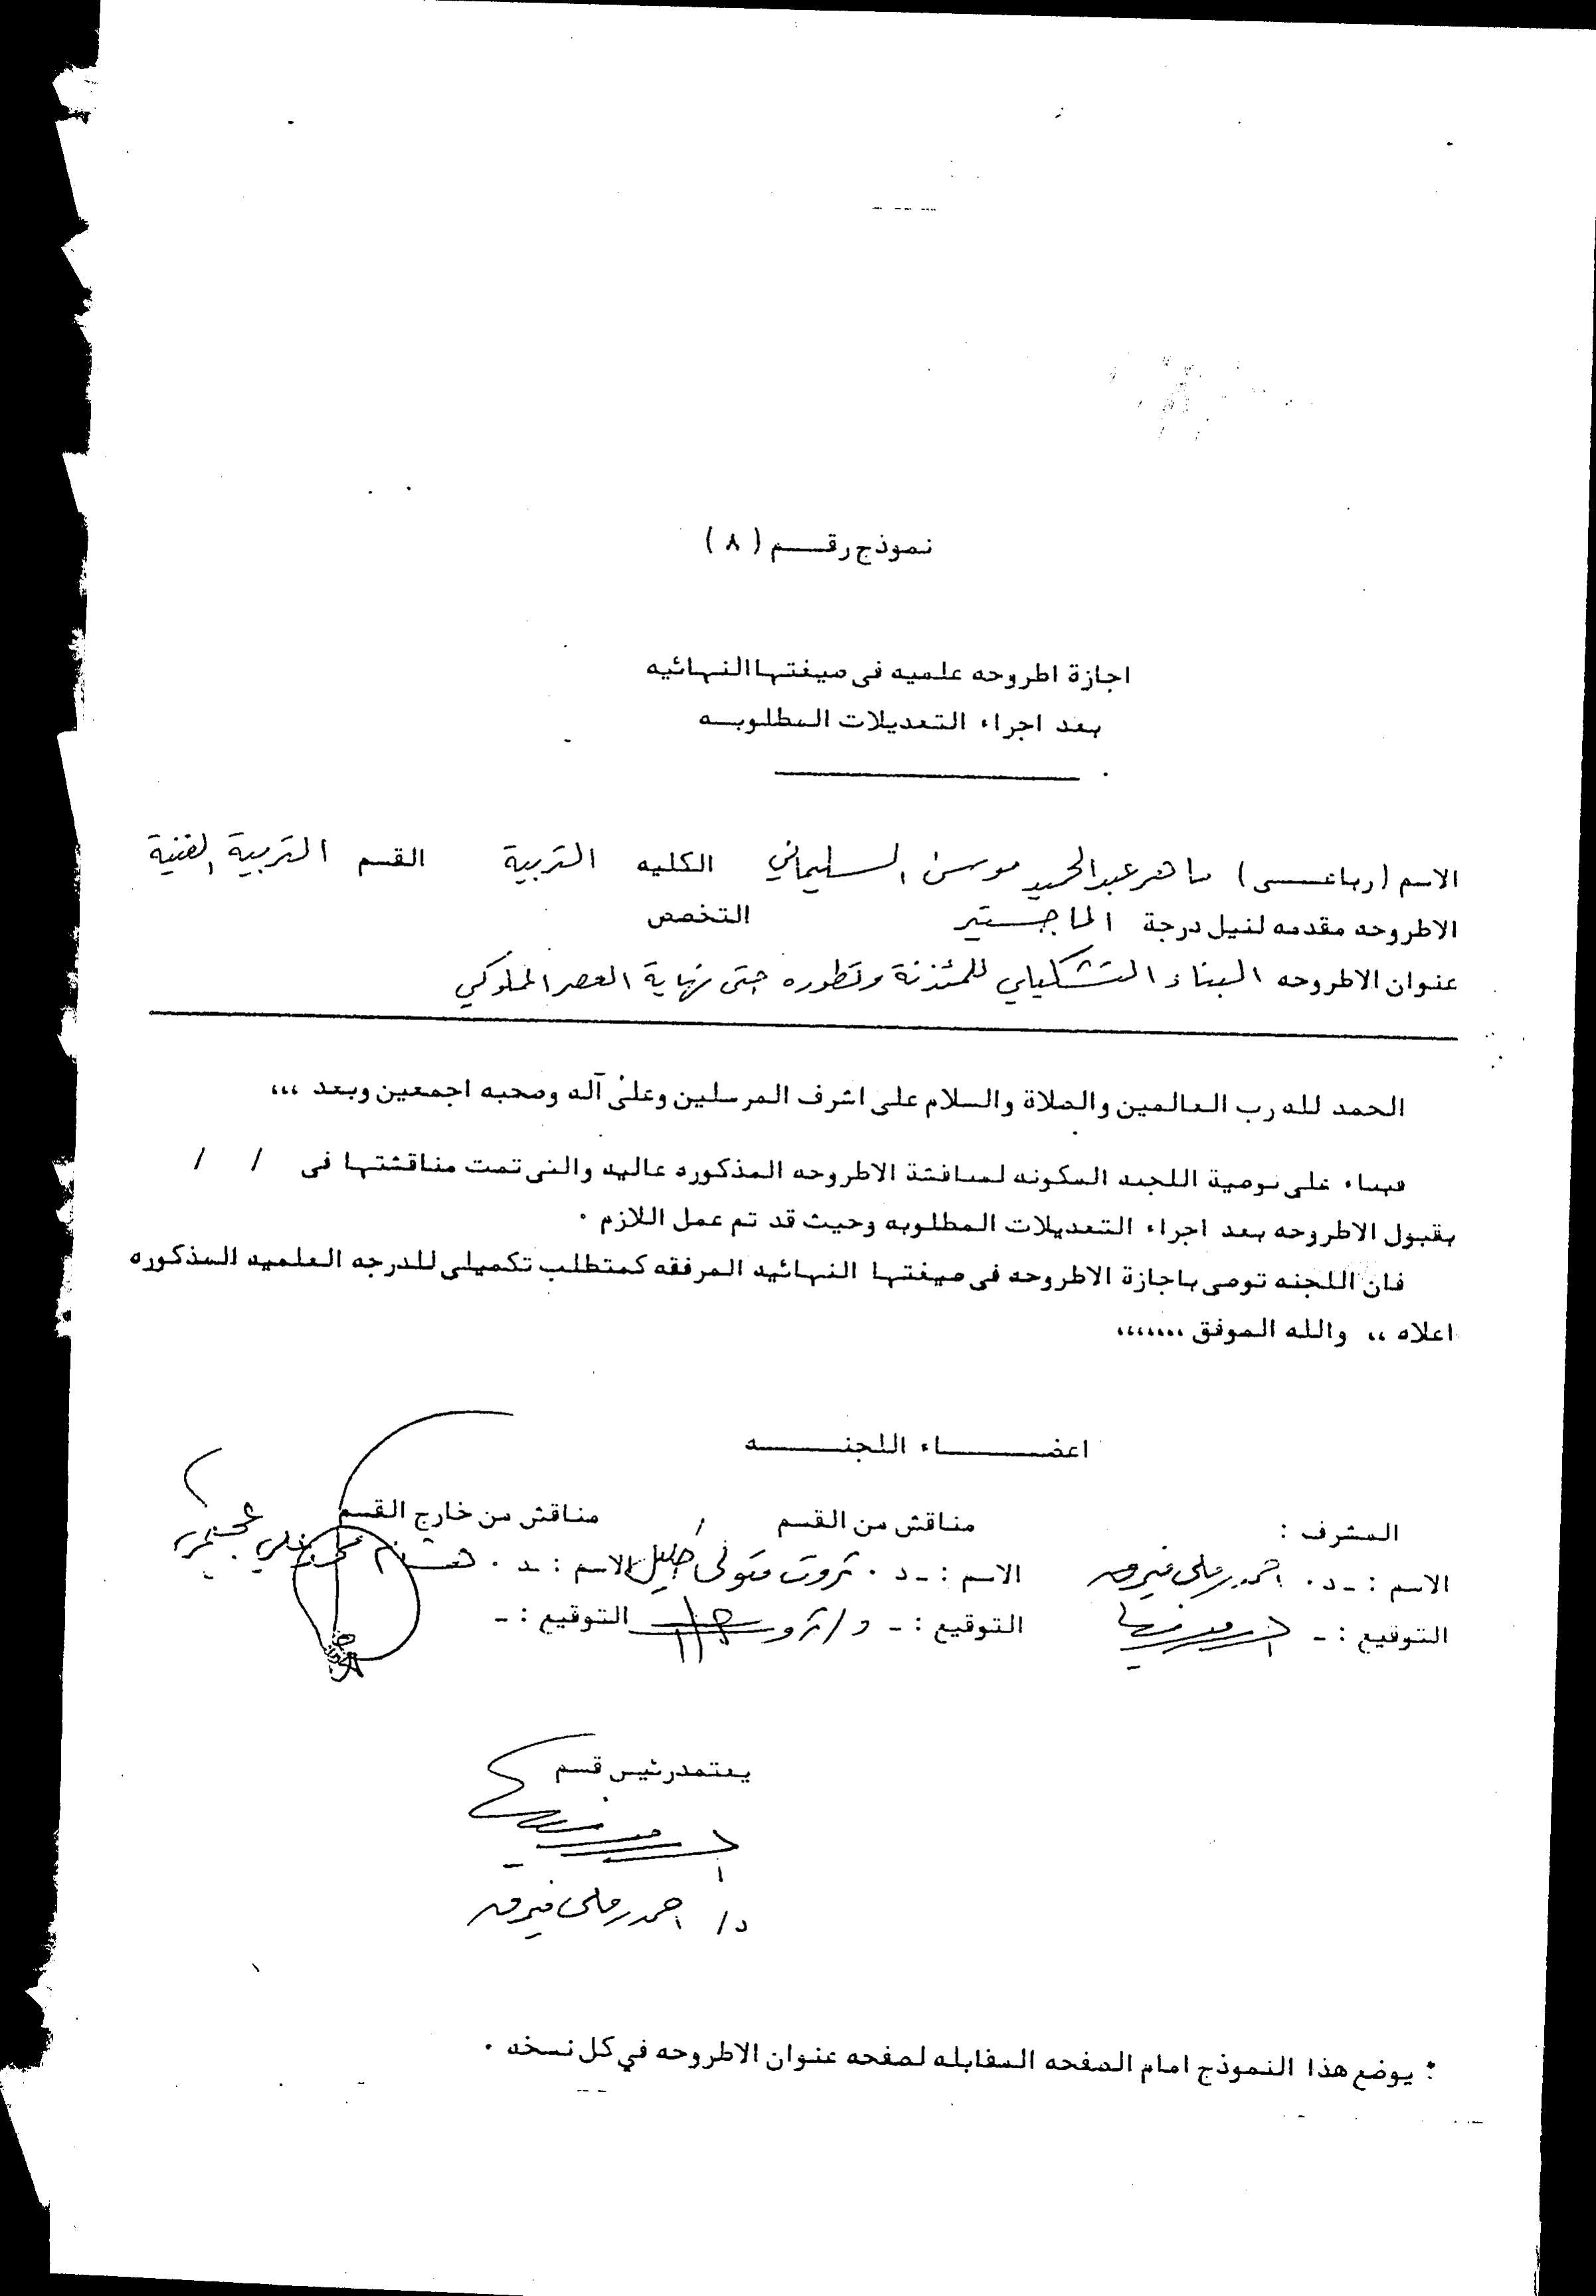 نموذج رقم ( ٨ )
اجازة اطروحه علميه فى صيغتها النهائيه
بعد اجراء التعديلات المطلوبه
الاسم ( رباعى ) ماهر عبدالحميد موسى السليماني الكليه التربية القسم التربية الفنية
الاطروحه مقدمه لنيل درجة الماجستير التخصص
عنوان الاطروحه البناء التشكيلي للمئذنة وتطوره حتى نهاية العصر المملوكي
الحمد لله رب العالمين والصلاة والسلام على اشرف المرسلين وعلى آله وصحبه اجمعين وبعد ،،،
فبناء على توصية اللجنه المكونه لمناقشة الاطروحه المذكوره عاليه والتى تمت مناقشتها فى / /
بقبول الاطروحه بعد اجراء التعديلات المطلوبه وحيث قد تم عمل اللازم .
فان اللجنه توصى باجازة الاطروحه فى صيغتها النهائيه المرفقه كمتطلب تكميلى للدرجه العلميه المذكوره
اعلاه ،، والله الموفق ،،،،،،،
اعضاء اللجنه
المشرف : مناقش من القسم مناقش من خارج القسم
الاسم :ـ د. احمد فيرق الاسم :ـ د. ثروت متولى خليل الاسم :ـ د. هشام محمد علي عجيمي
التوقيع :ـ التوقيع :ـ التوقيع :ـ
يعتمد رئيس قسم
د/ احمد
: يوضع هذا النموذج امام الصفحه المقابله لصفحه عنوان الاطروحه في كل نسخه .